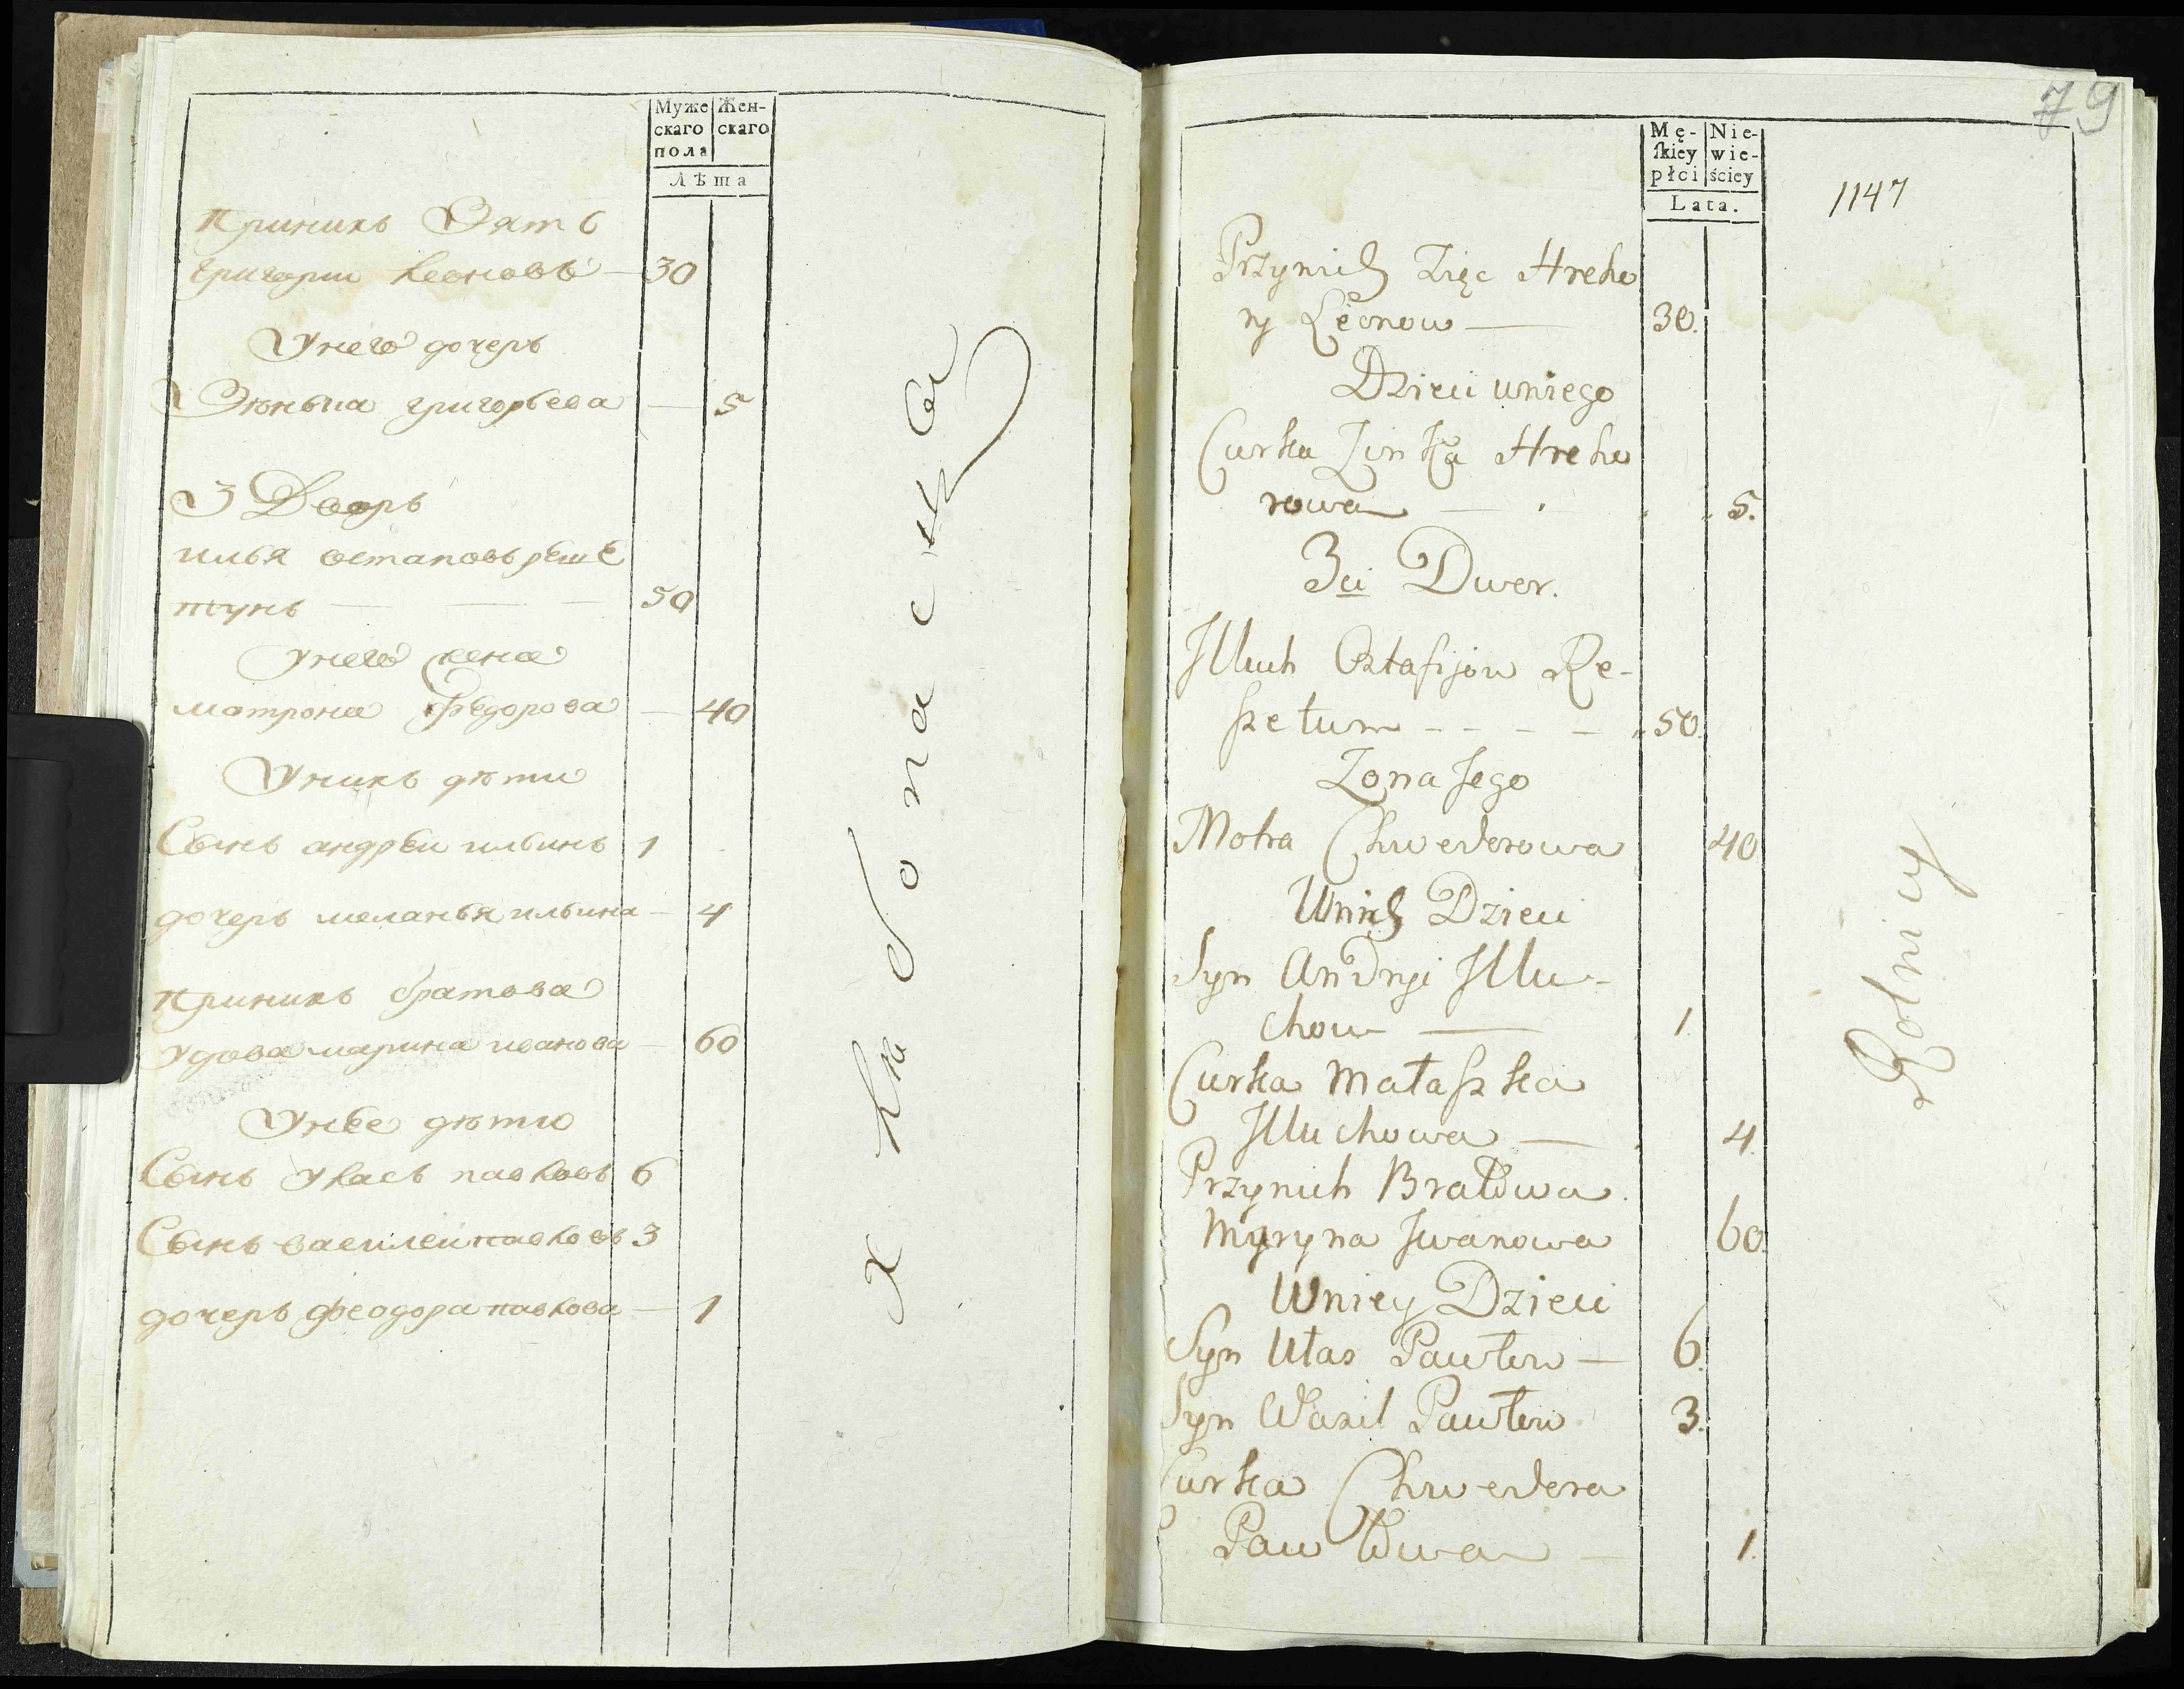 Муже
скаго
пола
Жен-
скаго
Лѣта
приникъ Зятъ
григорий леоновъ — 30
Унего дочеръ
Зѣньна григорьева — 5
3 Дворъ
илья остаповъ реше
тунъ — — — 50
Унего жена
матрона федорова — 40
Уникъ дѣти
Сынъ андрей ильинъ 1
дочеръ меланья ильина — 4
приникъ братова
удова марина иванова — 60
Унее дѣти
Сынъ уласъ павловъ 6
Сынъ василей павловъ 3
дочеръ феодора павлова — 1
хлѣбопасцы
79
Mę-
skiey
płci
Nie-
wie-
ściey
Lata.
1147
Przynich Zięc Hreho
ry Leonow — 30.
Dzieci uniego
Curka Zinka Hreho
rowa — 5.
3ci Dwor.
Illuch Ostafijow Re-
szetum - - - - 50.
Zona Jego
Motra Chwederowa 40
Unich Dzieci
Syn Andryi Illu-
chow — 1.
Curka Mataszka
Illuchowa — 4.
Przynich Bratowa.
Maryna Iwanowa 60.
Uniey Dzieci
Syn Ułas Pawłow — 6.
Syn Wasil Pawłow 3.
Curka Chwedora
Pawłowa — 1.
Rolnicy